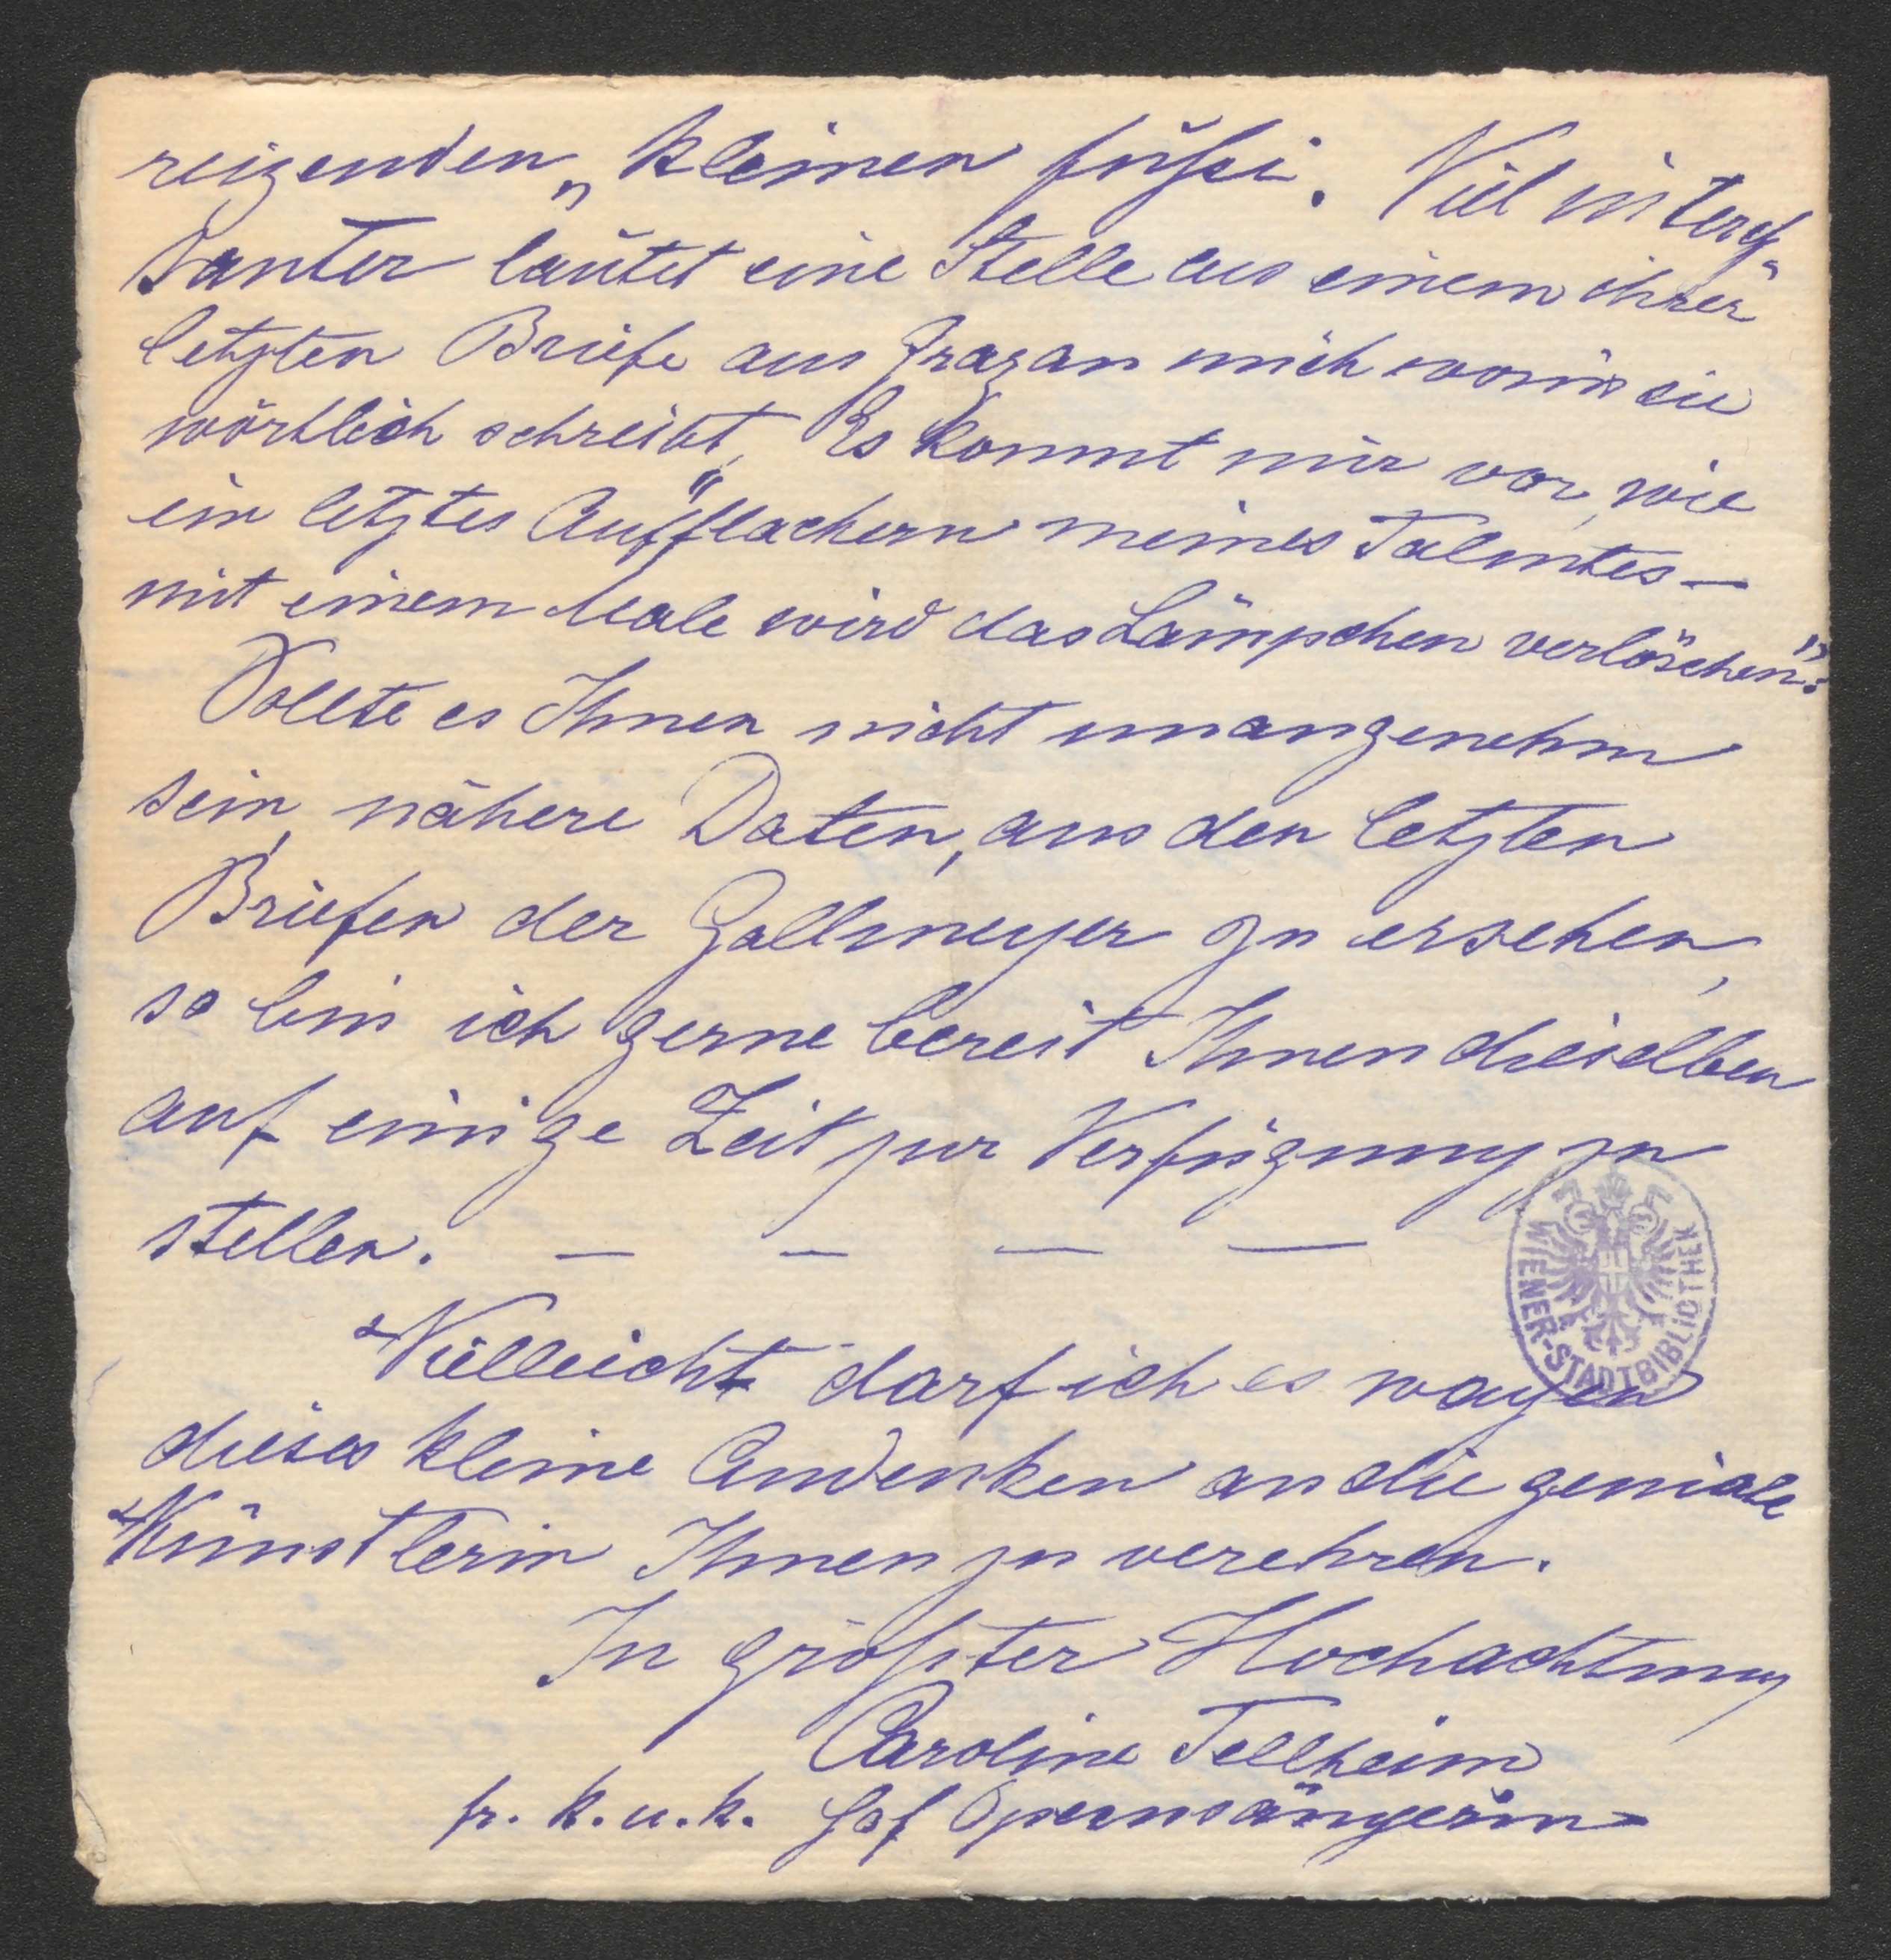 reizenden „kleinen Füße". Viel interes-
santer lautet eine Stelle aus einem ihrer
letzten Briefe aus Graz an mich worin sie
wörtlich schreibt, „Es kommt mir vor, wie
ein letztes Aufflackern meines Talentes —
mit einem Male wird das Lämpchen verlöschen".
Sollte es Ihnen nicht unangenehm
sein, nähere Daten, aus den letzten
Briefen der Gallmeyer zu ersehen,
so bin ich gerne bereit Ihnen dieselben
auf einige Zeit zur Verfügung zu
stellen. — — — —
Vielleicht darf ich es wagen
dieses kleine Andenken an die geniale
Künstlerin Ihnen zu verehren.
In größter Hochachtung
Caroline Tellheim
fr. k. u. k. Hof Opernsängerin
WIENER-STADTBIBLIOTHEK